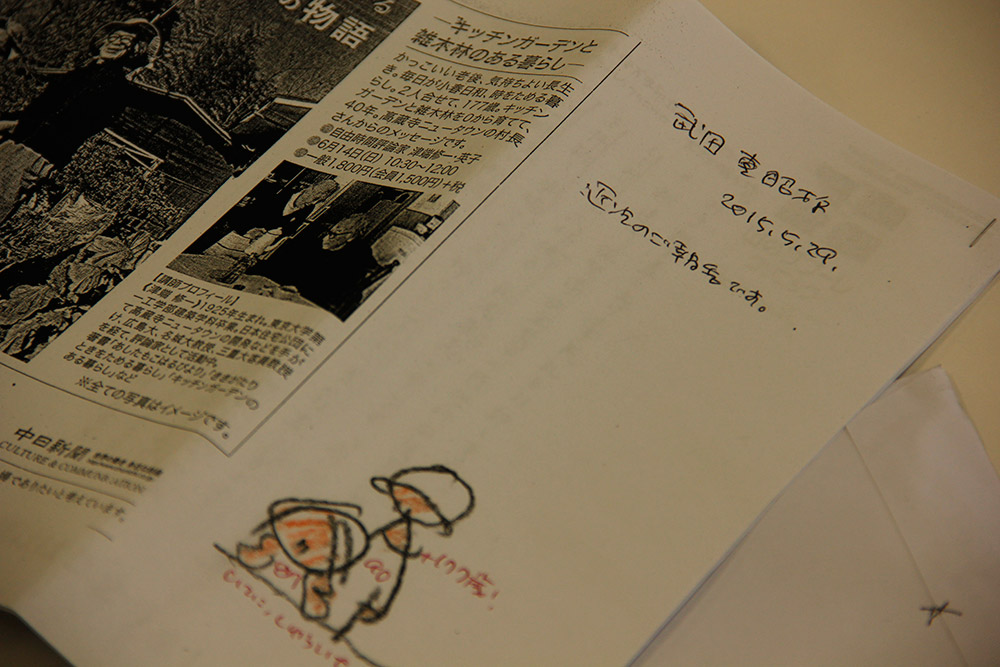 る
の物語
―キッチンガーデンと
雑木林のある暮らし―
かっこいい老後、気持ちよい長生
き。毎日が小春日和、時をためる暮
らし。2人合せて、177歳。キッチン
ガーデンと雑木林を0から育てて、
40年。高蔵寺ニュータウンの村長
さんからのメッセージです。
自由時間評論家 津端修一・英子
6月14日(日) 10:30~12:00
一般1,800円(会員1,500円)+税
【講師プロフィール】
《津端 修一》1925年生まれ。東京大学第
一工学部建築学科卒業。日本住宅公団に
て高蔵寺ニュータウンの開発などを手が
け、広島大、名城大教授、三重大客員教授
を経て、評論家として活動中。
著書「あしたもこはるびより」「ききがたり
ときをためる暮らし」「キッチンガーデンの
ある暮らし」など
※全ての写真はイメージです。
中日新聞
CULTURE & COMMUNICATION
場でありたいと考えています。
武田
2015.5.29.
近況のご報告です。
87
90